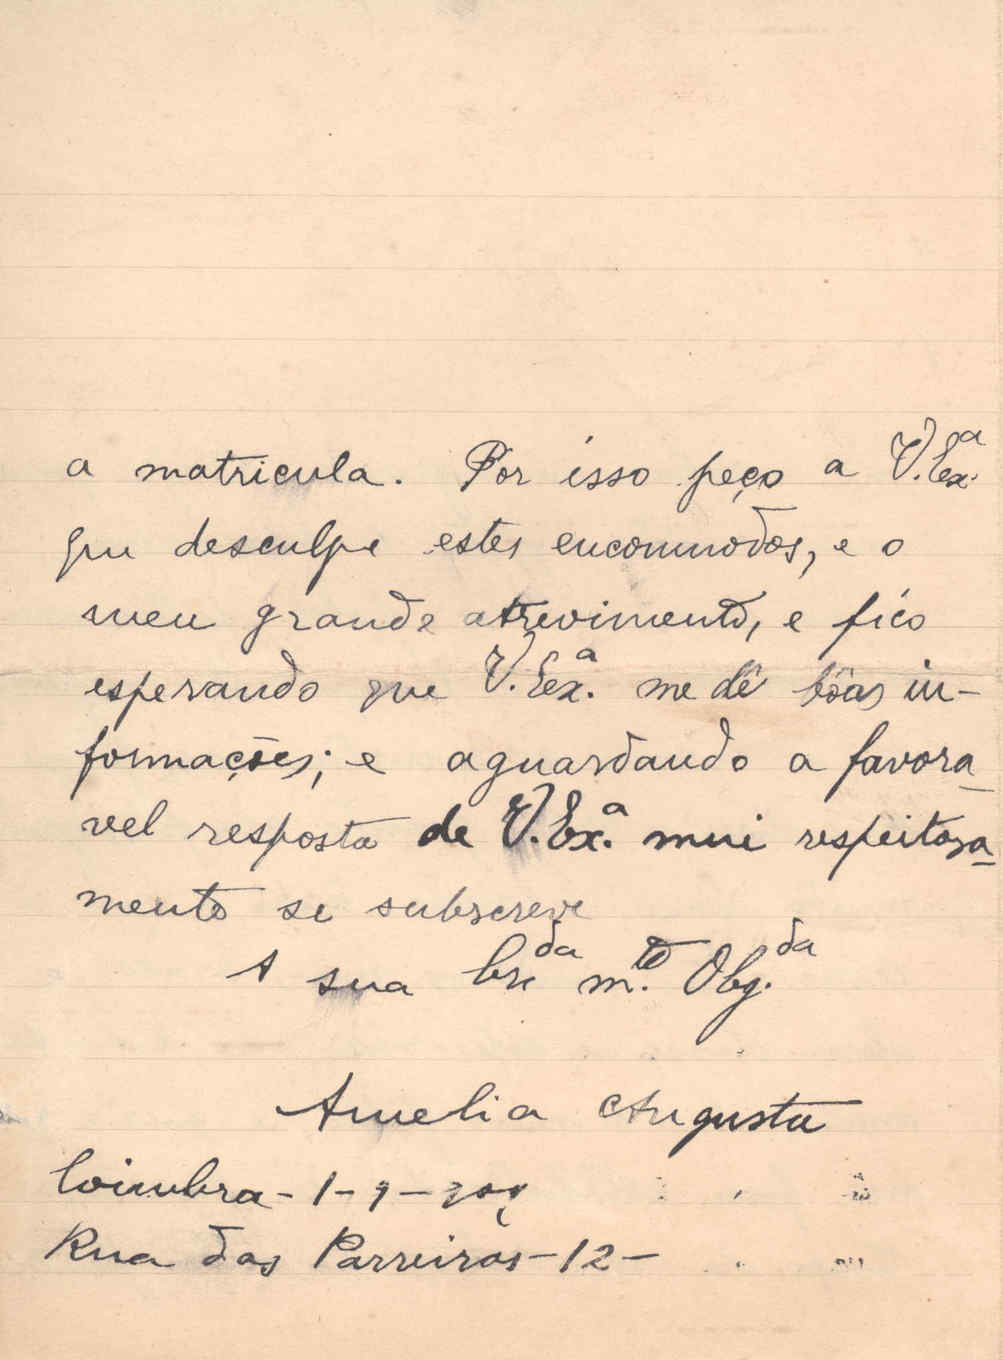 a matricula. Por isso peço a V. Exª.
que desculpe estes encommodos, e o
meu grande atrevimento, e fico
esperando que V. Exª. me dê bôas in-
formações; e aguardando a favora-
vel resposta de V. Exª. mui respeitosa-
mente se subscreve
A sua crᵈᵃ m.ᵗᵒ Obg.ᵈᵃ
Amelia Augusta
Coimbra - 1 - 9 -
Rua das Parreiras - 12 -